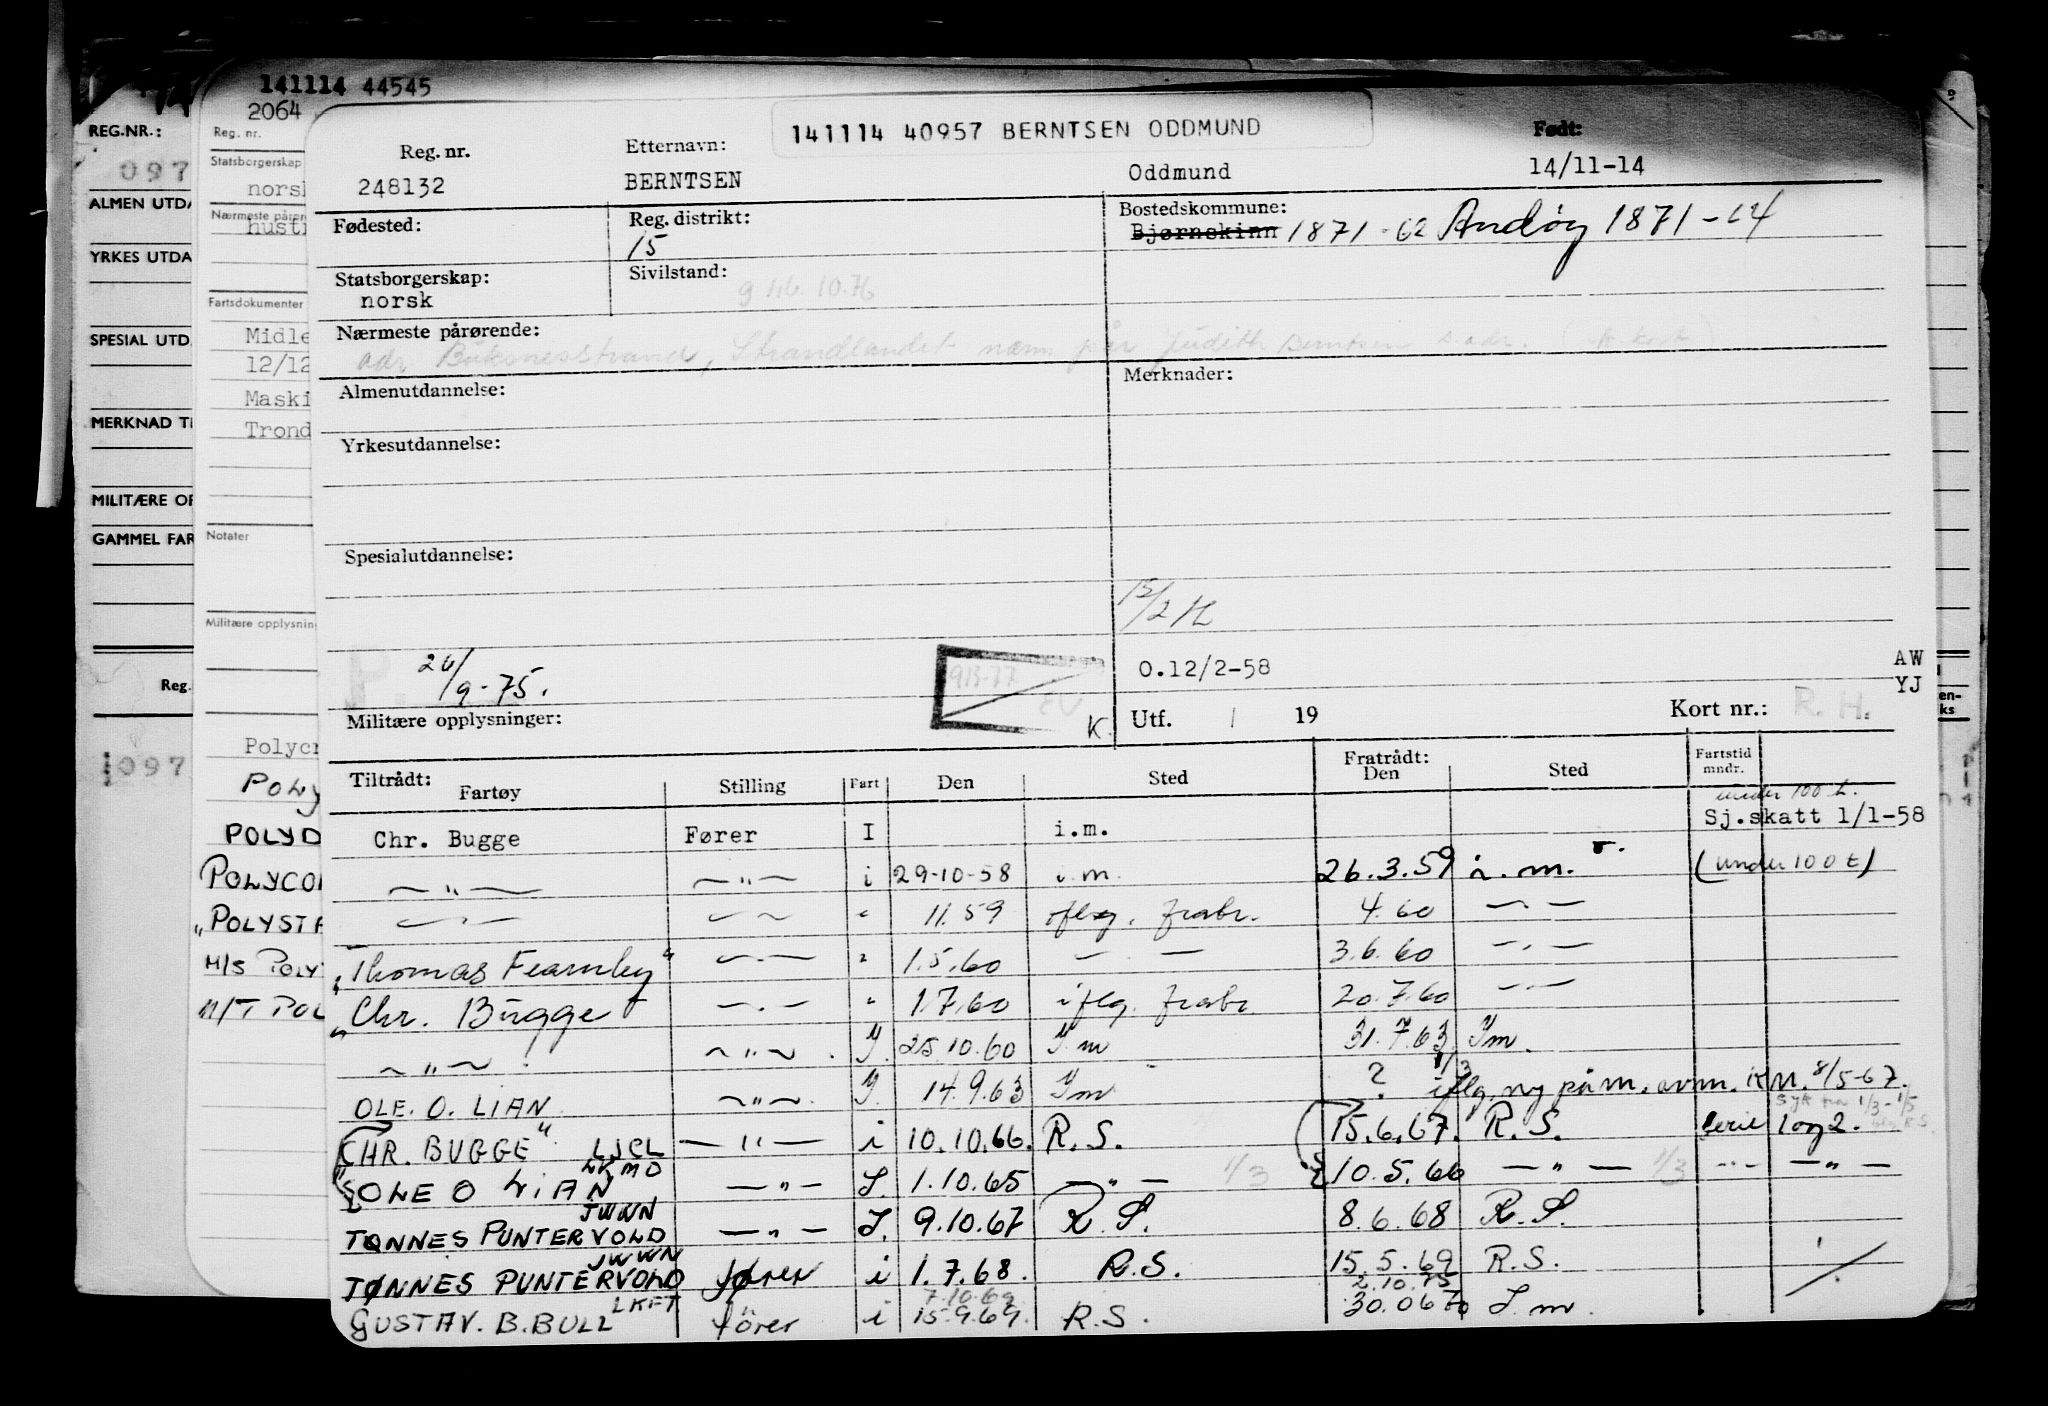 141114 44545
2064
REG.NR.:
097
ALMEN UTDA
YRKES UTDA
SPECIAL UTD
MERKNAD TI
MILITÆRE OP
GAMMEL FAR
Reg.
097
Reg. nr.
Statsborgerskap
norsk
Nærmeste pårøren
hustr
Fartsdokumenter
Midle
12/12
Maski
Trond
Notater
Militære opplysning
Polycr
POLY
POLYD
POLYCO
"POLYSTA
M/S POLY
M/T POL
141114 40957 BERNTSEN ODDMUND
Reg. nr. Etternavn: Født:
248132 BERNTSEN Oddmund 14/11-14
Fødested: Reg. distrikt: 15 Bostedskommune:
Bjørnskinn 1871-62 Andøy 1871-64
Statsborgerskap: norsk Sivilstand: g 1/6.10.76
Nærmeste pårørende:
adr Buksnesstrand, Strandlandet navn pår Judith Berntsen s.adr.
Almenutdannelse: Merknader:
Yrkesutdannelse:
Spesialutdannelse:
12/2 H
26/9-75. O.12/2-58 AW
YJ
Militære opplysninger: K. Utf. / 19 Kort nr.: R.H.
Tiltrådt: Fartøy Stilling Fart Den Sted Fratrådt: Den Sted Fartstid mndr.
under 100 t.
Chr. Bugge Fører I i.m. Sj.skatt 1/1-58
— " — — " — i 29-10-58 i.m. 26.3.59 i.m. (under 100 t)
— " — — " — " 11.59 iflg. frabr. 4.60 — " —
"Thomas Fearnley" — " — " 1.5.60 — " — 3.6.60 — " —
"Chr. Bugge — " — " 1.7.60 iflg. frabr 20.7.60 — " —
— " — — " — I. 25.10.60 I m 31.7.63 I m.
OLE. O. LIAN — " — I. 14.9.63 I m ? 1/3 iflg. ny påm. avm. KM. 8/5-67.
CHR. BUGGE" LJCL — " — i 10.10.66. R.S. 15.6.67. R.S. Serie 1 og 2.
"OLE O LIAN LKMD — " — I. 1.10.65 — " — 1/3 10.5.66 — " — 1/3 — " — — " —
TØNNES PUNTERVOLD JWWN — " — I. 9.10.67 R.S. 8.6.68 R.S.
TØNNES PUNTERVOLD JWWN fører i 1.7.68. R.S. 15.5.69 R.S.
7.10.69 2.10.75
GUSTAV. B. BULL LKFT fører i 15.9.69. R.S. 30.06.70 I.m.